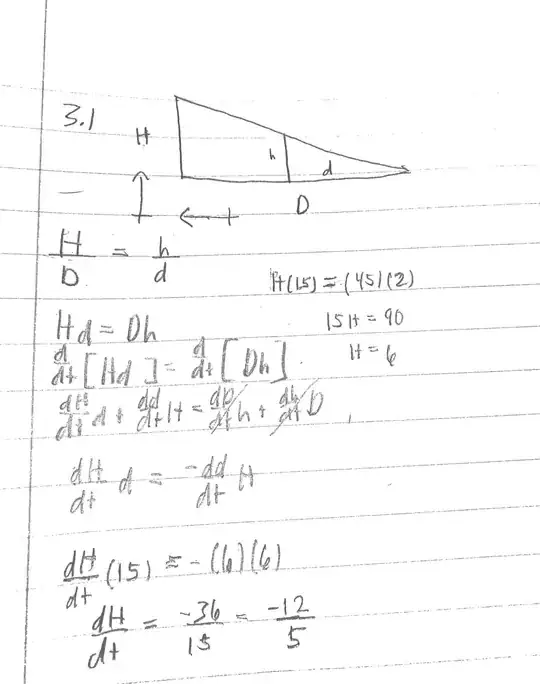 3.1
H
h
d
D
H/D = h/d
H(15) = (45)(2)
15H = 90
H = 6
Hd = Dh
d/dt [Hd] = d/dt [Dh]
dH/dt d + dd/dt H = dD/dt h + dh/dt D
dH/dt d = -dd/dt H
dH/dt (15) = -(6)(6)
dH/dt = -36/15 = -12/5